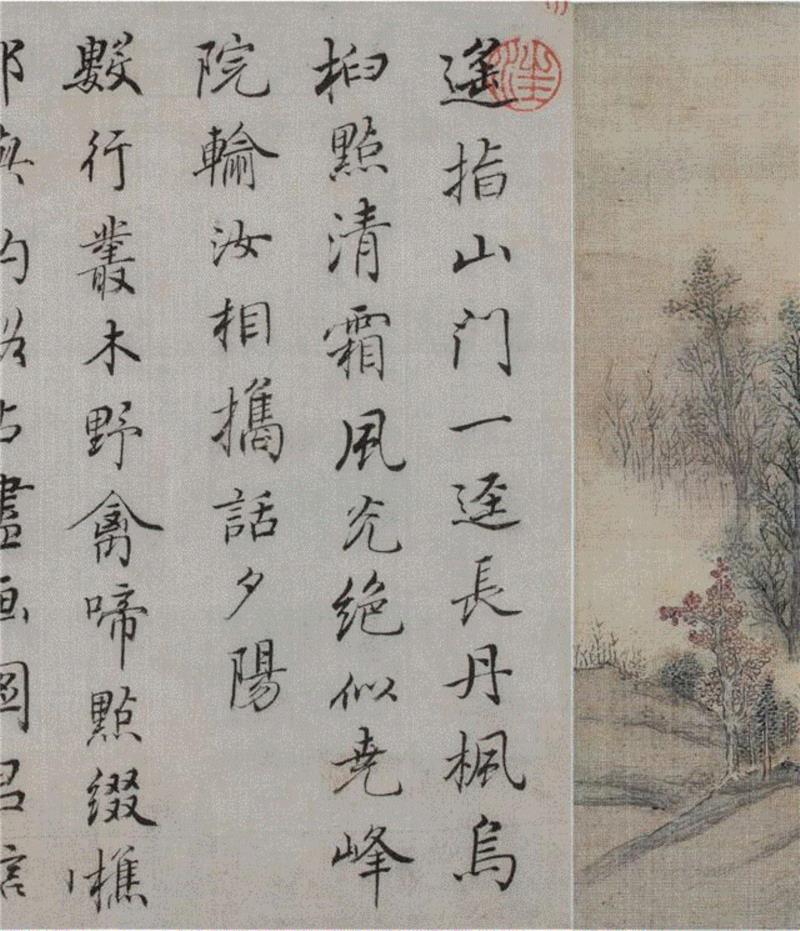 遙指山门一迳長丹楓烏
桕點清霜風光绝似尭峰
院輸汝相攜話夕陽
數行叢木野禽啼點綴樵